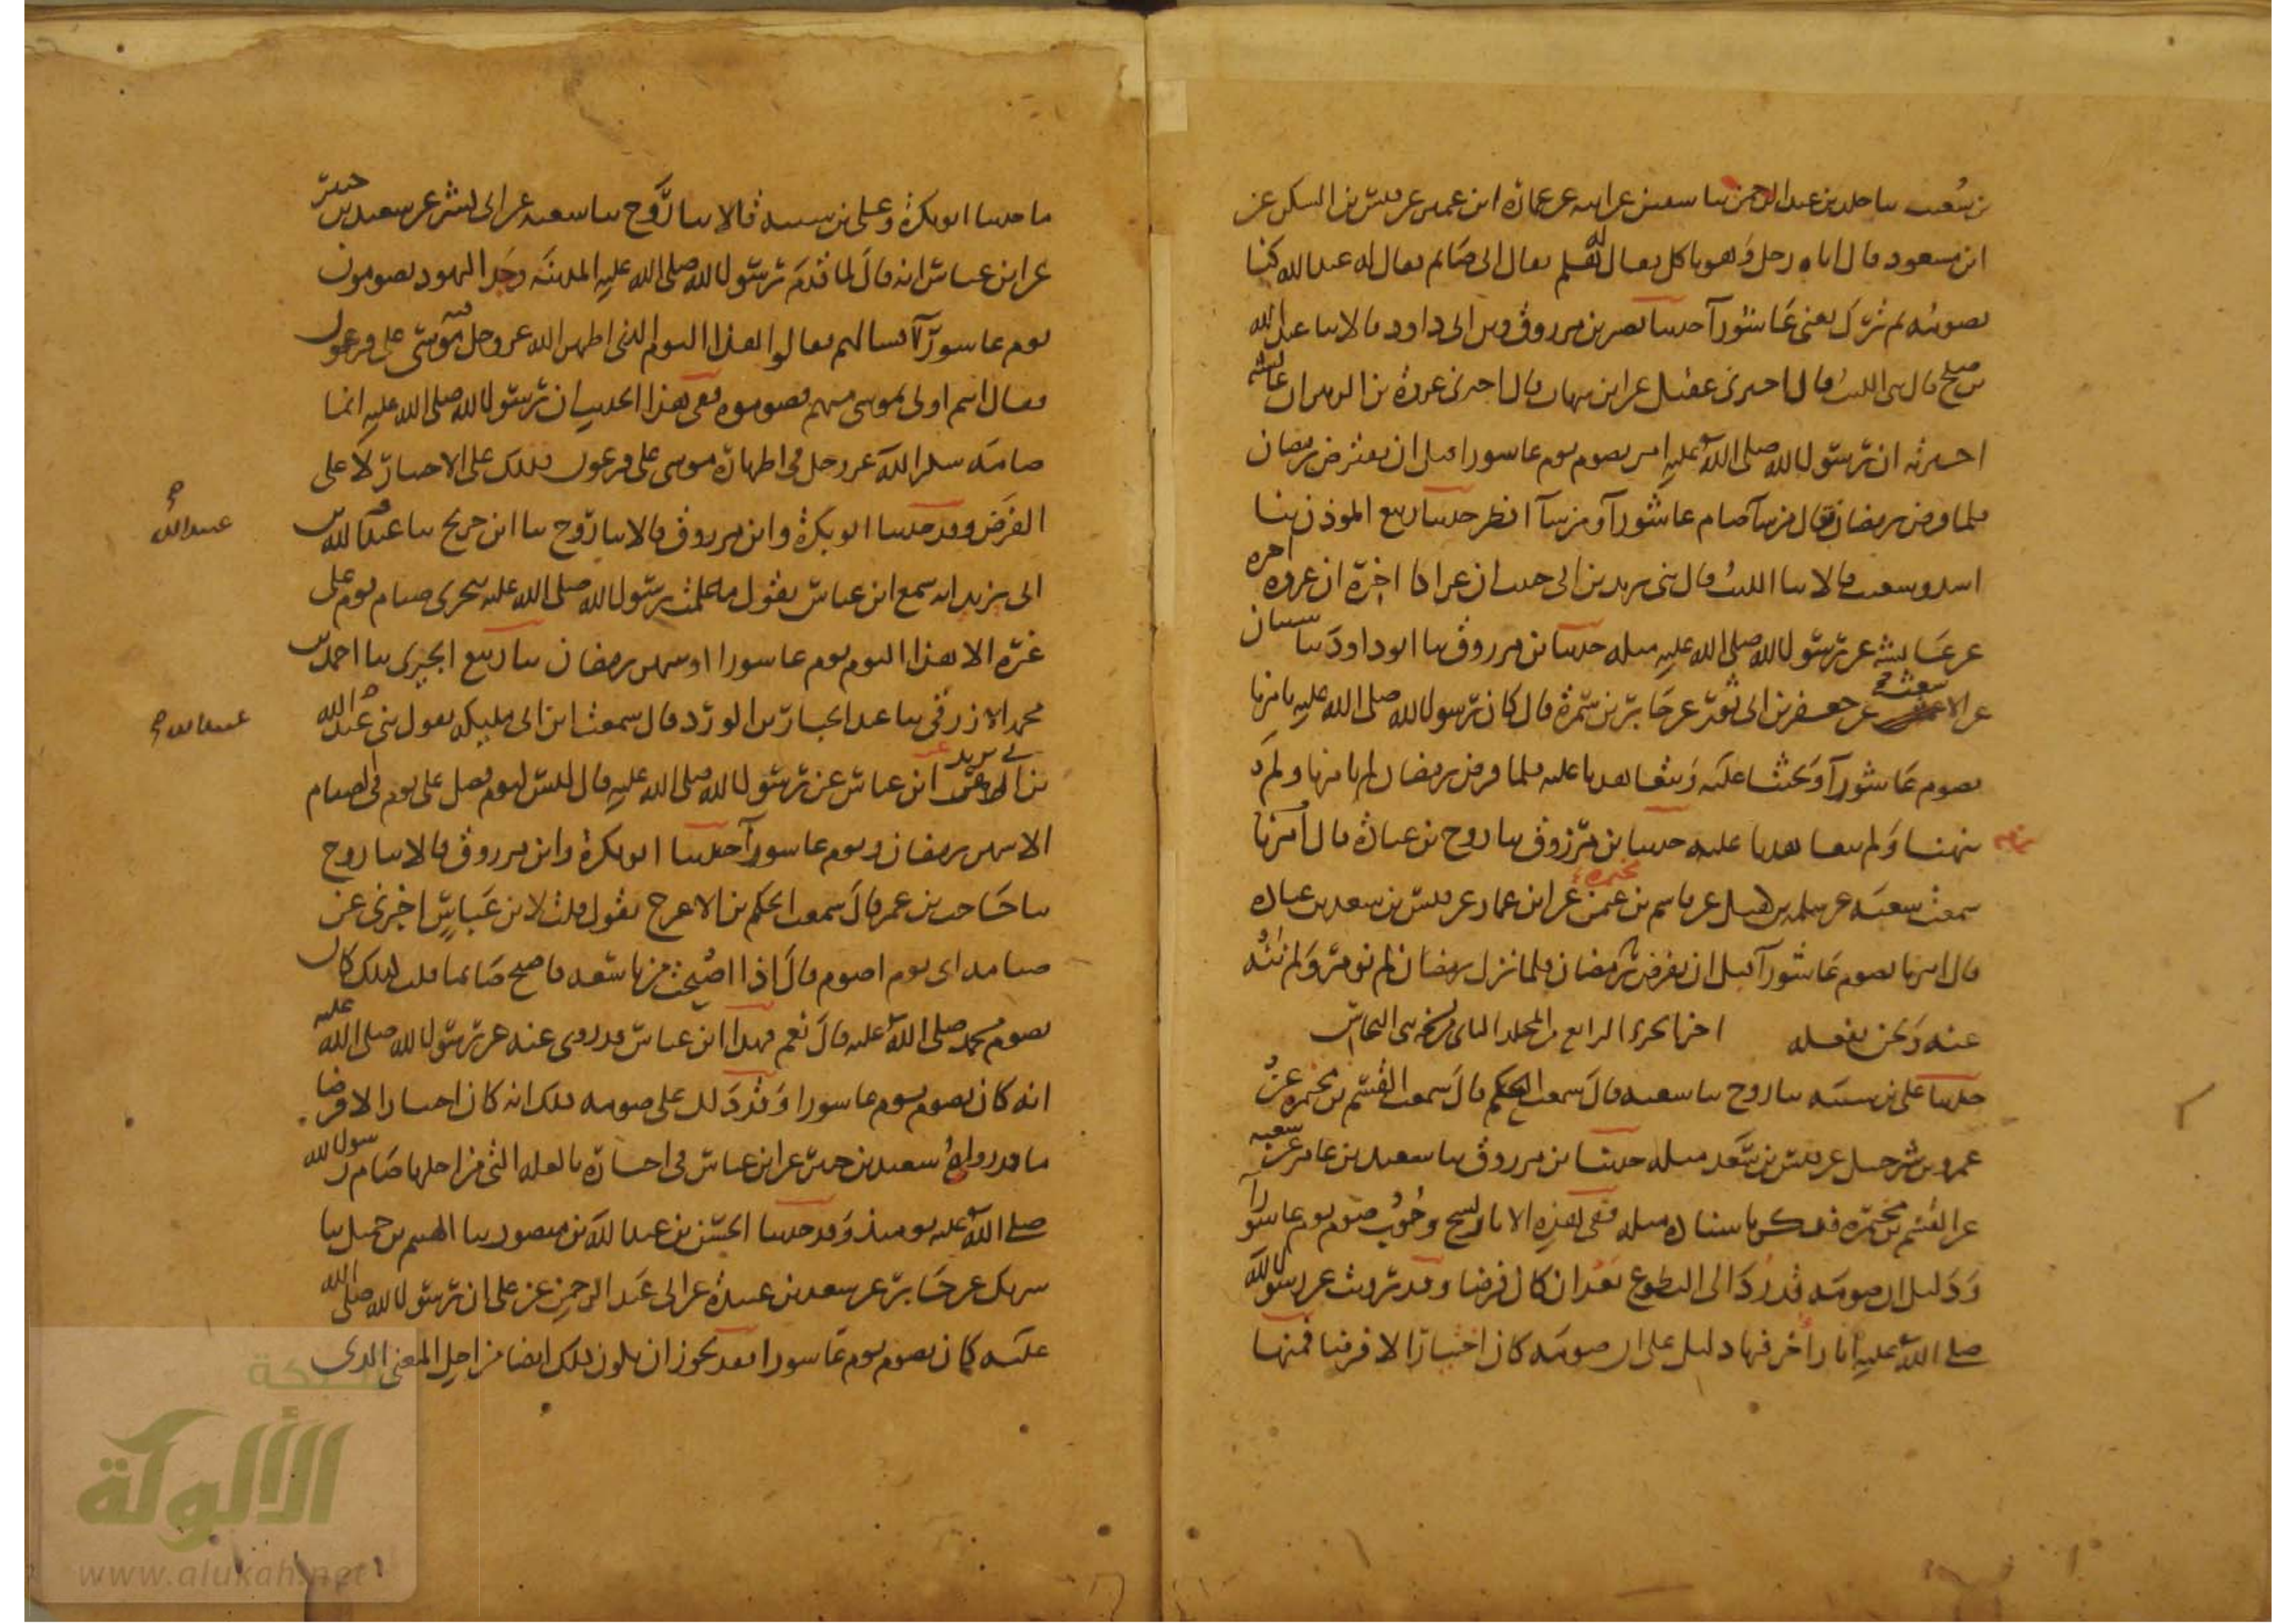 بن شعيب سا خلد بن عبد الرحمن سا سفين عن ابيه عن عمارة ابن عمير عن قيس بن السكن عن
ابن مسعود قال اتاه رجل وهو ياكل فقال له هلم فقال اني صائم فقال له عبد الله كنا
نصومه ثم ترك يعني عاشورآ حدثنا نصر بن مرزوق وبن ابي داود قالا سا عبد الله
بن صلح قال سي الليث قال اخبرني عقيل عن ابن شهاب قال اخبرني عروة بن الزبير ان عائشه
اخبرته ان رسول الله صلى الله عليه امر بصوم يوم عاشورا قبل ان يفترض رمضان
فلما فرض رمضان فقال من شآ صام عاشورآ ومن شآ افطر حدثنا ربيع الموذن سا
اسد وشعيب قالا سا الليث قال سي يزيد بن ابي حبيب ان عراكا اخبره ان عروه اخبره
عن عائشه عن رسول الله صلى الله عليه مثله حدثنا بن مرزوق سا ابو داود سا شيبان
عن الاشعث عن جعفر بن ابي ثور عن جابر بن سمرة قال كان رسول الله صلى الله عليه يامرنا
بصوم عاشورآ ويحثنا عليه ويتعاهدنا عليه فلما فرض رمضان لم يامرنا ولم
ينهنا ولم يتعاهدنا عليه حدثنا بن مرزوق سا روح بن عبادة قال امرنا
سمعت شعبه عن سلمه بن كهيل عن قاسم بن مخيمره عن ابن عمار عن قيس بن سعد بن عباده
قال امرنا بصوم عاشورآ قبل ان يفرض رمضان فلما نزل رمضان لم نومر ولم ننه
عنه ونحن نفعله اخر الجزء الرابع من المجلد الثاني من نسخه سي النحاس
حدثنا علي بن شيبه سا روح سا شعبه قال سمعت الحكم قال سمعت القسم بن مخيمره عن
عمرو بن شرحبيل عن قيس بن سعد مثله حدثنا بن مرزوق سا سعيد بن عامر عن شعبه
عن القسم بن مخيمره فذكر باسناده مثله ففي هذه الاثار نسخ وجوب صوم يوم عاشورآ
ودليل ان صومه قد رد الى التطوع بعد ان كان فرضا وقد رويت عن رسول الله
صلى الله عليه اثار اخر فيها دليل على ان صومه كان اختيارا لا فرضا فمنها
ما حدثنا ابو بكرة وعلي بن شيبه قالا سا روح سا شعبه عن ابي بشر عن سعيد بن جبير
عن ابن عباس انه قال لما قدم رسول الله صلى الله عليه المدينه وجد اليهود يصومون
يوم عاشورآ فسالهم فقالوا هذا اليوم الذي اظهر الله عز وجل فيه موسى على فرعون
فقال انتم اولى بموسى منهم فصوموه ففي هذا الحديث ان رسول الله صلى الله عليه انما
صامه شكرا لله عز وجل في اظهاره موسى على فرعون فذلك على الاختيار لا على
الفرض وقد حدثنا ابو بكرة وابن مرزوق قالا سا روح سا ابن جريج سا عبد الله بن
عبيد الله
ابي يزيد انه سمع ابن عباس يقول ما علمت رسول الله صلى الله عليه يتحرى صيام يوم على
غيره الا هذا اليوم يوم عاشورا او شهر رمضان سا ربيع الجيزي سا احمد بن
محمد الازرقي سا عبد الجبار بن الورد قال سمعت ابن ابي مليكه يقول سي عبد الله
عبيد الله
بن ابي يزيد عن ابن عباس عن رسول الله صلى الله عليه قال ليس ليوم فضل على يوم في الصيام
الا شهر رمضان ويوم عاشورآ حدثنا ابو بكرة وابن مرزوق قالا سا روح
سا حاجب بن عمر قال سمعت الحكم بن الاعرج يقول قلت لابن عباس اخبرني عن
صيام اي يوم اصوم قال اذا اصبحت من تاسعه فاصبح صائما قلت كذلك كان
يصوم محمد صلى الله عليه قال نعم فهذا ابن عباس قد روى عنه عن رسول الله صلى الله عليه
انه كان يصوم يوم عاشورا وقد دل على صومه ذلك انه كان اختيارا لا فرضا
ما قد رواه سعيد بن جبير عن ابن عباس في اخباره بالعله التي من اجلها صام رسول الله
صلى الله عليه يومئذ وقد حدثنا الحسن بن عبد الله بن منصور سا الهيثم بن جميل سا
شريك عن جابر عن سعد بن عبيدة عن ابي عبد الرحمن عن علي ان رسول الله صلى الله
عليه كان يصوم يوم عاشورا فقد يجوز ان يكون ذلك ايضا من اجل المعنى الذي
شبكة
الألوكة
www.alukah.net